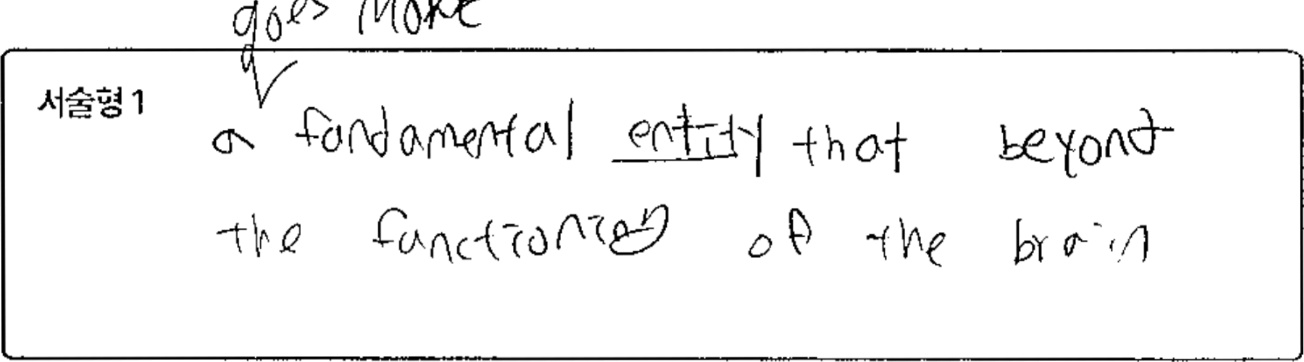 goes more
서술형 1
a fandamental entity that beyond
the functioning of the brain